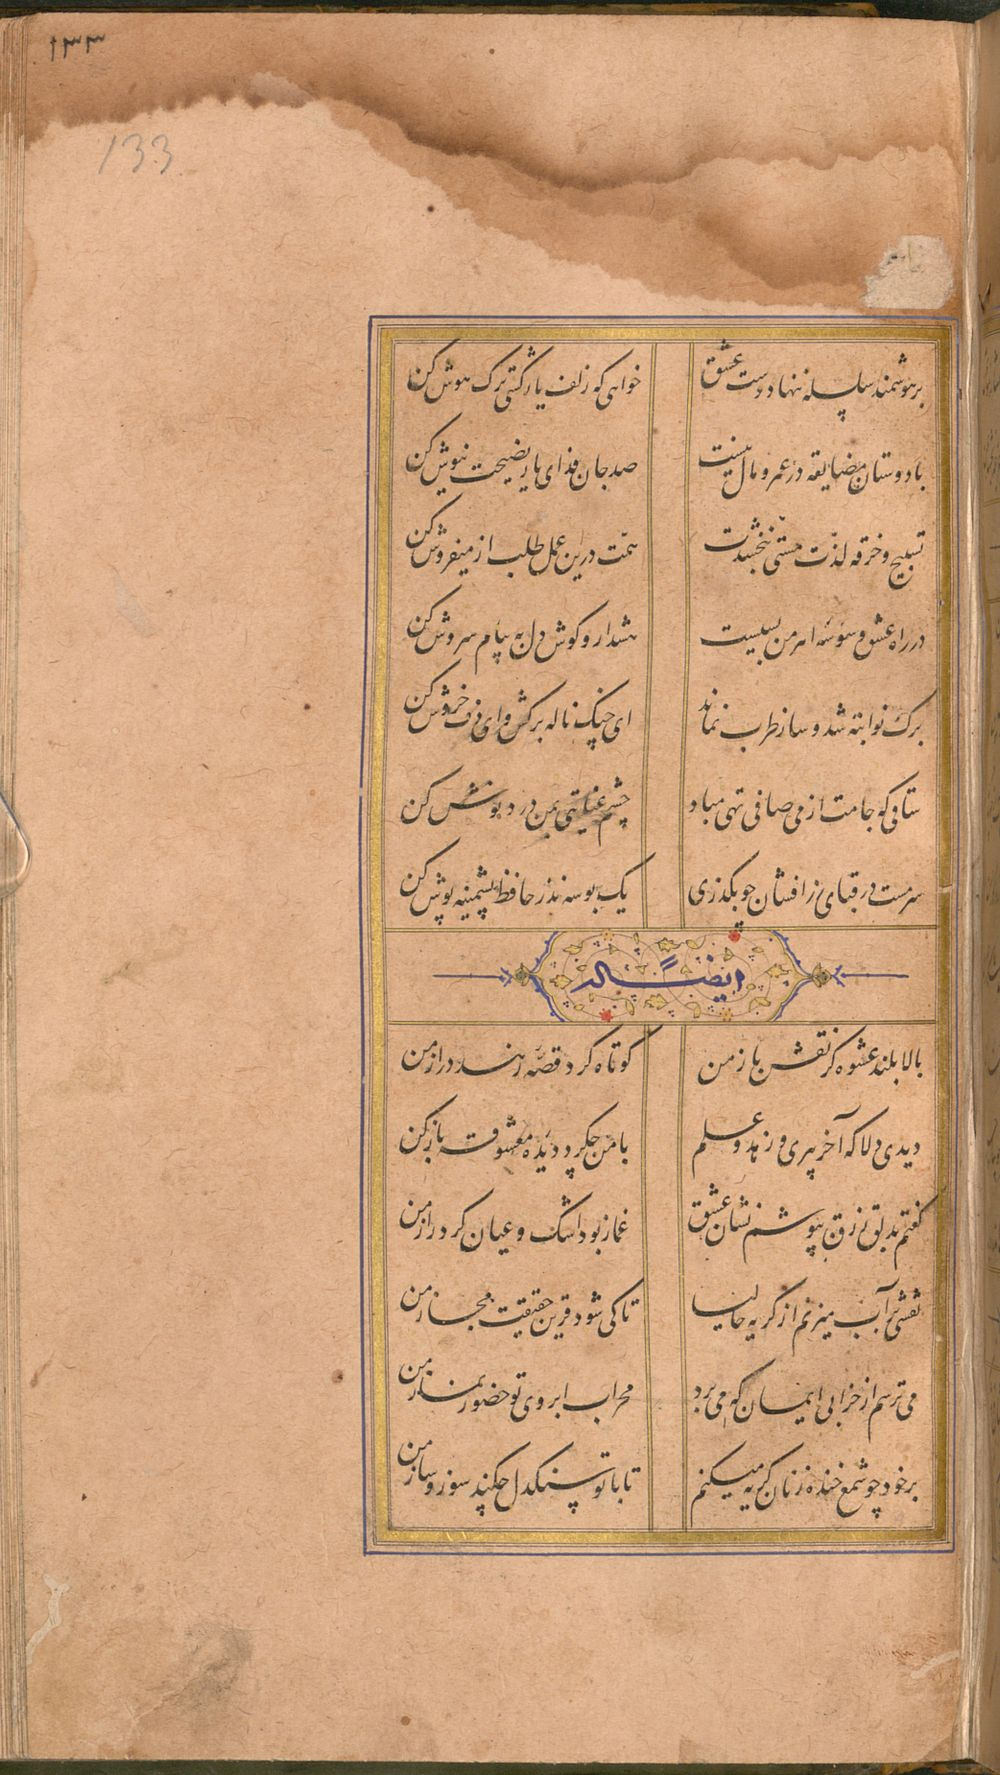 ۱۳۳
133
بر هوشمند سلسله ننهاد دست عشق
خواهی که زلف یار کشی ترک هوش کن
با دوستان مضایقه در عمر و مال نیست
صد جان فدای یار نصیحت نیوش کن
تسبیح و خرقه لذت مستی نبخشدت
همت درین عمل طلب از میفروش کن
در راه عشق وسوسه اهرمن بسیست
هشدار و گوش دل به پیام سروش کن
برگ نوا تبه شد و ساز طرب نماند
ای چنگ ناله برکش و ای دف خروش کن
ساقی که جامت از می صافی تهی مباد
چشم عنایتی بمن درد نوش کن
سرمست در قبای زرافشان چو بگذری
یک بوسه نذر حافظ پشمینه پوش کن
ایضاً له
بالا بلند عشوه گر نقش باز من
کوتاه کرد قصه زهد دراز من
دیدی دلا که آخر پیری و زهد و علم
با من چکرد دیده معشوقه باز من
گفتم بدلق زرق بپوشم نشان عشق
غماز بود اشک و عیان کرد راز من
نقشی بر آب میزنم از گریه حالیا
تا کی شود قرین حقیقت مجاز من
می ترسم از خرابی ایمان که می برد
محراب ابروی تو حضور نماز من
بر خود چو شمع خنده زنان گریه میکنم
تا با تو سنگدل چکند سوز و ساز من